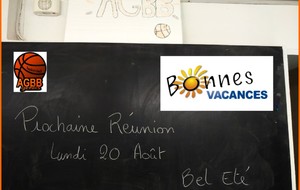 AGBB
AGBB
Bonnes
VACANCES
Prochaine Réunion
Lundi 20 Août
Bel Eté